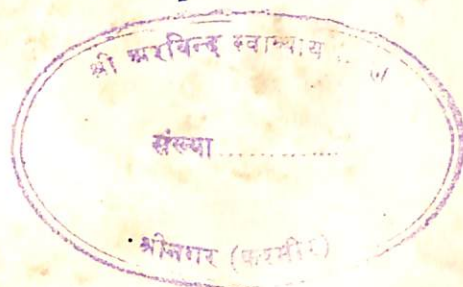 श्री अरविन्द स्वाध्याय
संख्या ..................
श्रीनगर (कश्मीर)